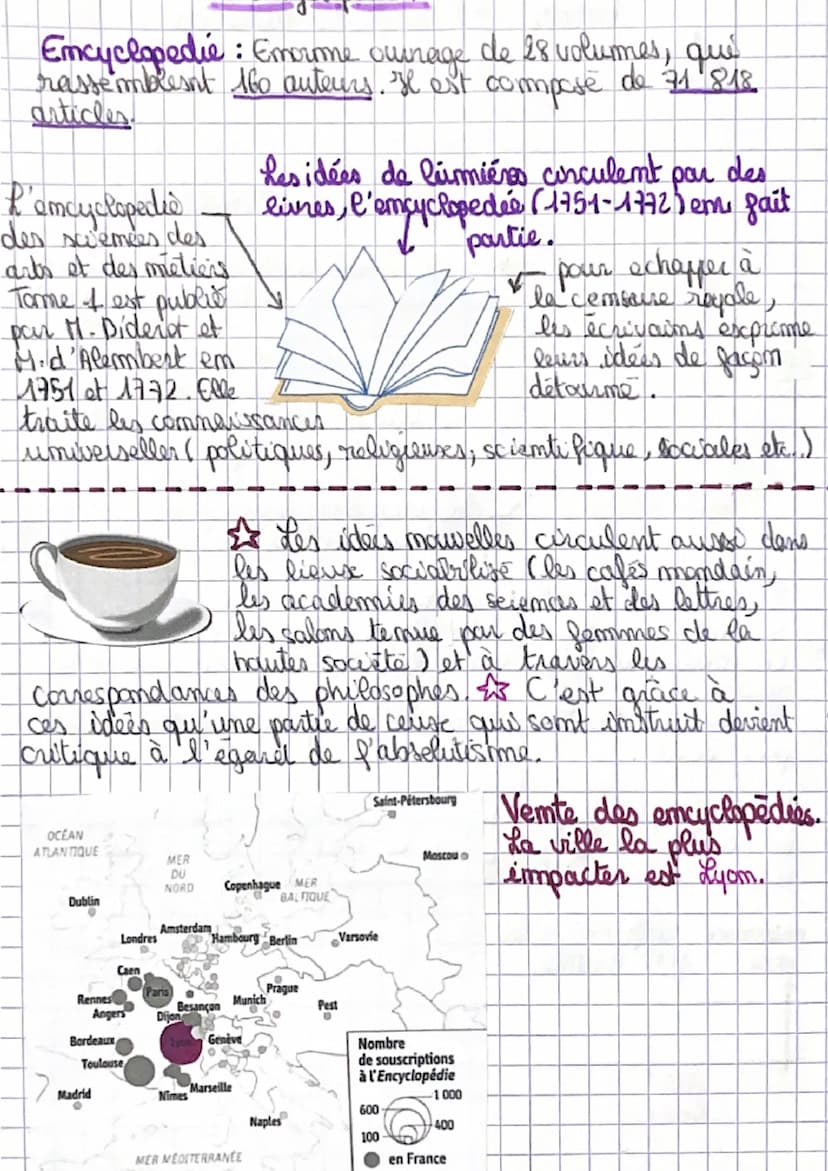 Encyclopedie : Enorme ouvrage de 28 volumes, qui
rassemblesnt 160 auteurs. Il est composé de 71 818
articles.
Les idées de lumiéres circulent par des
livres, l'encyclopedée (1751-1772) en fait
partie.
L'encyclopedie
des sciences des
arts et des métiers
Tome 1 est publié
par M. Diderot et
M. d'Alembert en
1751 et 1772. Elle
traite les connaissances
universelles ( politiques, religieuses, scientifique, sociales etc..)
pour echapper à
la censure royale,
les écrivains exprime
leurs idées de façon
détourné.
☆ Les idées nouvelles circulent aussi dans
les lieux sociabilisé (les cafés mondain,
les academies des sciences et des lettres,
les salons tenue par des femmes de la
hautes société) et à travers les
correspondances des philosophes. ☆ C'est grâce à
ces idées qu'une partie de ceux qui sont instruit devient
critique à l'égard de l'absolutisme.
Vente des encyclopédies.
La ville la plus
impacter est Lyon.
Saint-Pétersbourg
OCÉAN
ATLANTIQUE
Moscou
MER
DU
NORD
Copenhague
MER
BALTIQUE
Dublin
Amsterdam
Londres
Hambourg
Berlin
Varsovie
Caen
Paris
Prague
Rennes
Besançon
Munich
Pest
Angers
Dijon
Bordeaux
Lyon
Genève
Toulouse
Madrid
Nîmes
Marseille
Naples
MER MÉDITERRANÉE
Nombre
de souscriptions
à l'Encyclopédie
1 000
600
400
100
en France